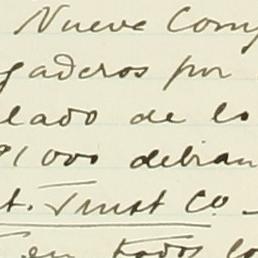 Nueve Comp
gaderos por
lado de lo
$1000 debian
t. Trust Co.
en todos lo